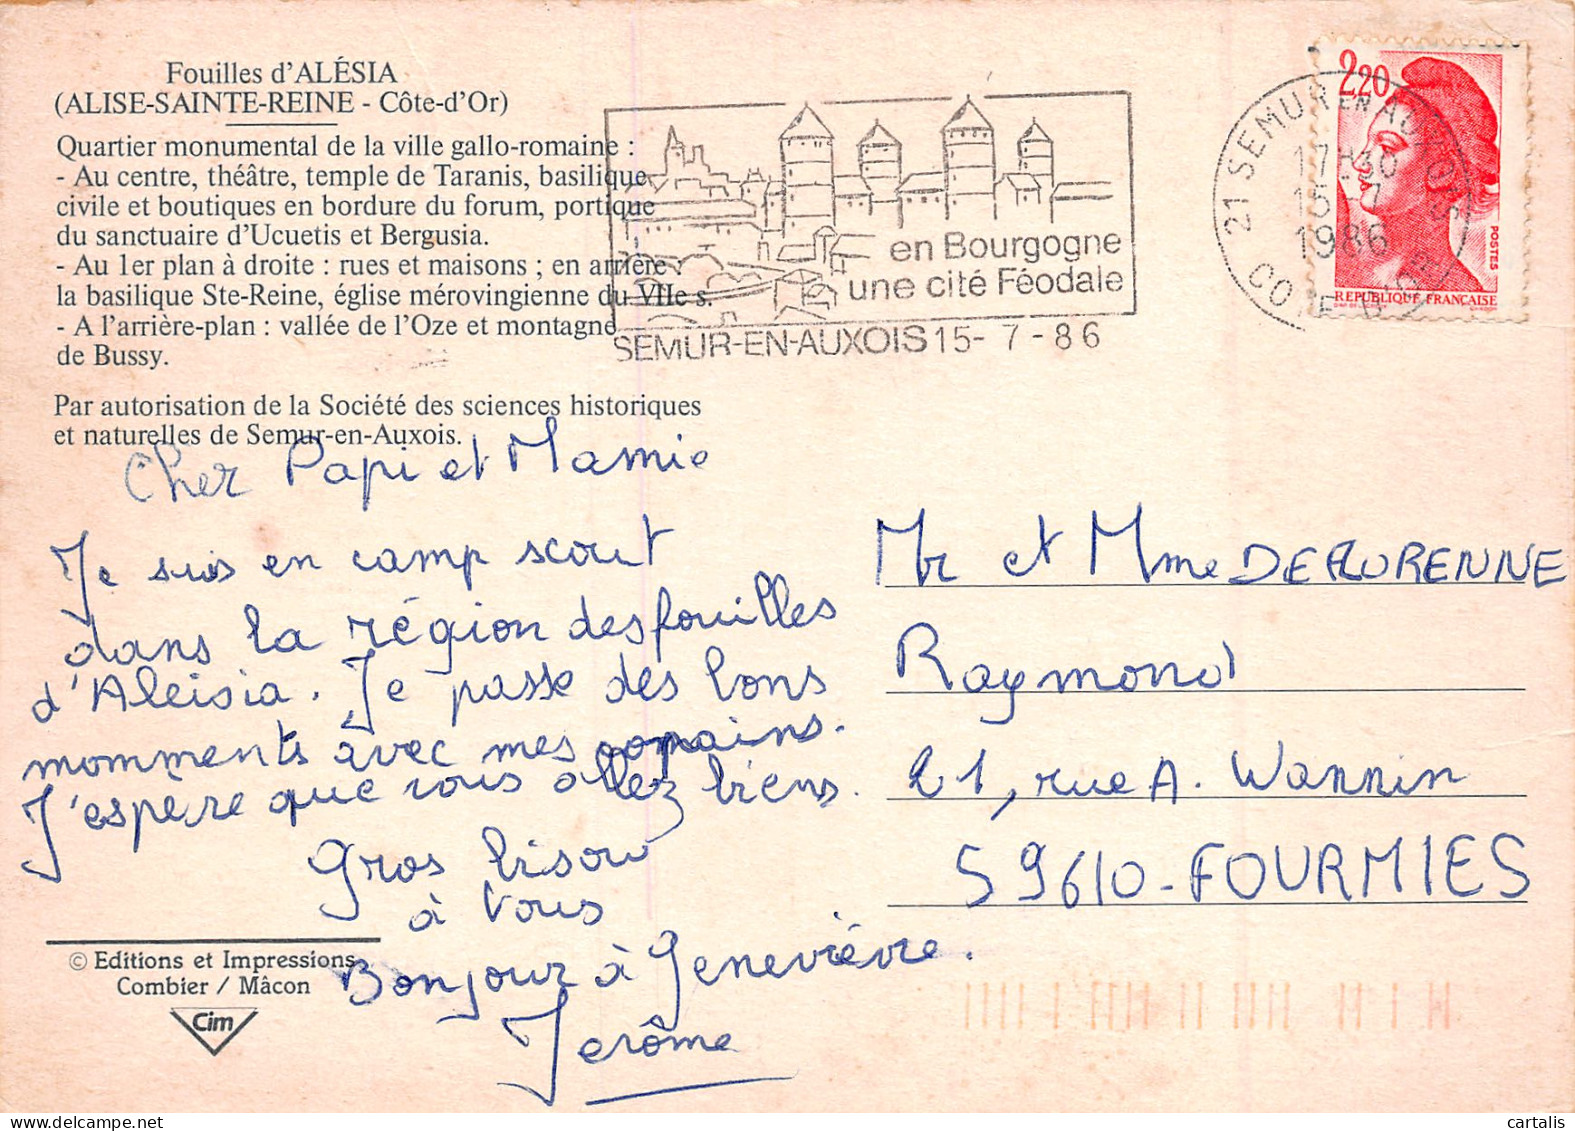 Fouilles d'ALÉSIA
(ALISE-SAINTE-REINE - Côte-d'Or)
Quartier monumental de la ville gallo-romaine :
- Au centre, théâtre, temple de Taranis, basilique
civile et boutiques en bordure du forum, portique
du sanctuaire d'Ucuetis et Bergusia.
- Au 1er plan à droite : rues et maisons ; en arrière :
la basilique Ste-Reine, église mérovingienne du VIIe s.
- A l'arrière-plan : vallée de l'Oze et montagne
de Bussy.
Par autorisation de la Société des sciences historiques
et naturelles de Semur-en-Auxois.
en Bourgogne
une cité Féodale
SEMUR-EN-AUXOIS 15- 7 - 86
21 SEMUR EN AUXOIS
17H30
15 - 7
1986
COTE D'OR
2,20
POSTES
REPUBLIQUE FRANÇAISE
Cher Papi et Mamie
Je suis en camp scout
dans la région des fouilles
d'Aleisia. Je passe des bons
momments avec mes copains.
J'espere que vous allez biens.
Gros bisou
à Vous
Bonjour à Genevièvre.
Jerôme
Mr et Mme DEFLORENNE
Raymond
21, rue A. Wannin
59610 - FOURMIES
© Editions et Impressions
Combier / Mâcon
Cim
cartalis